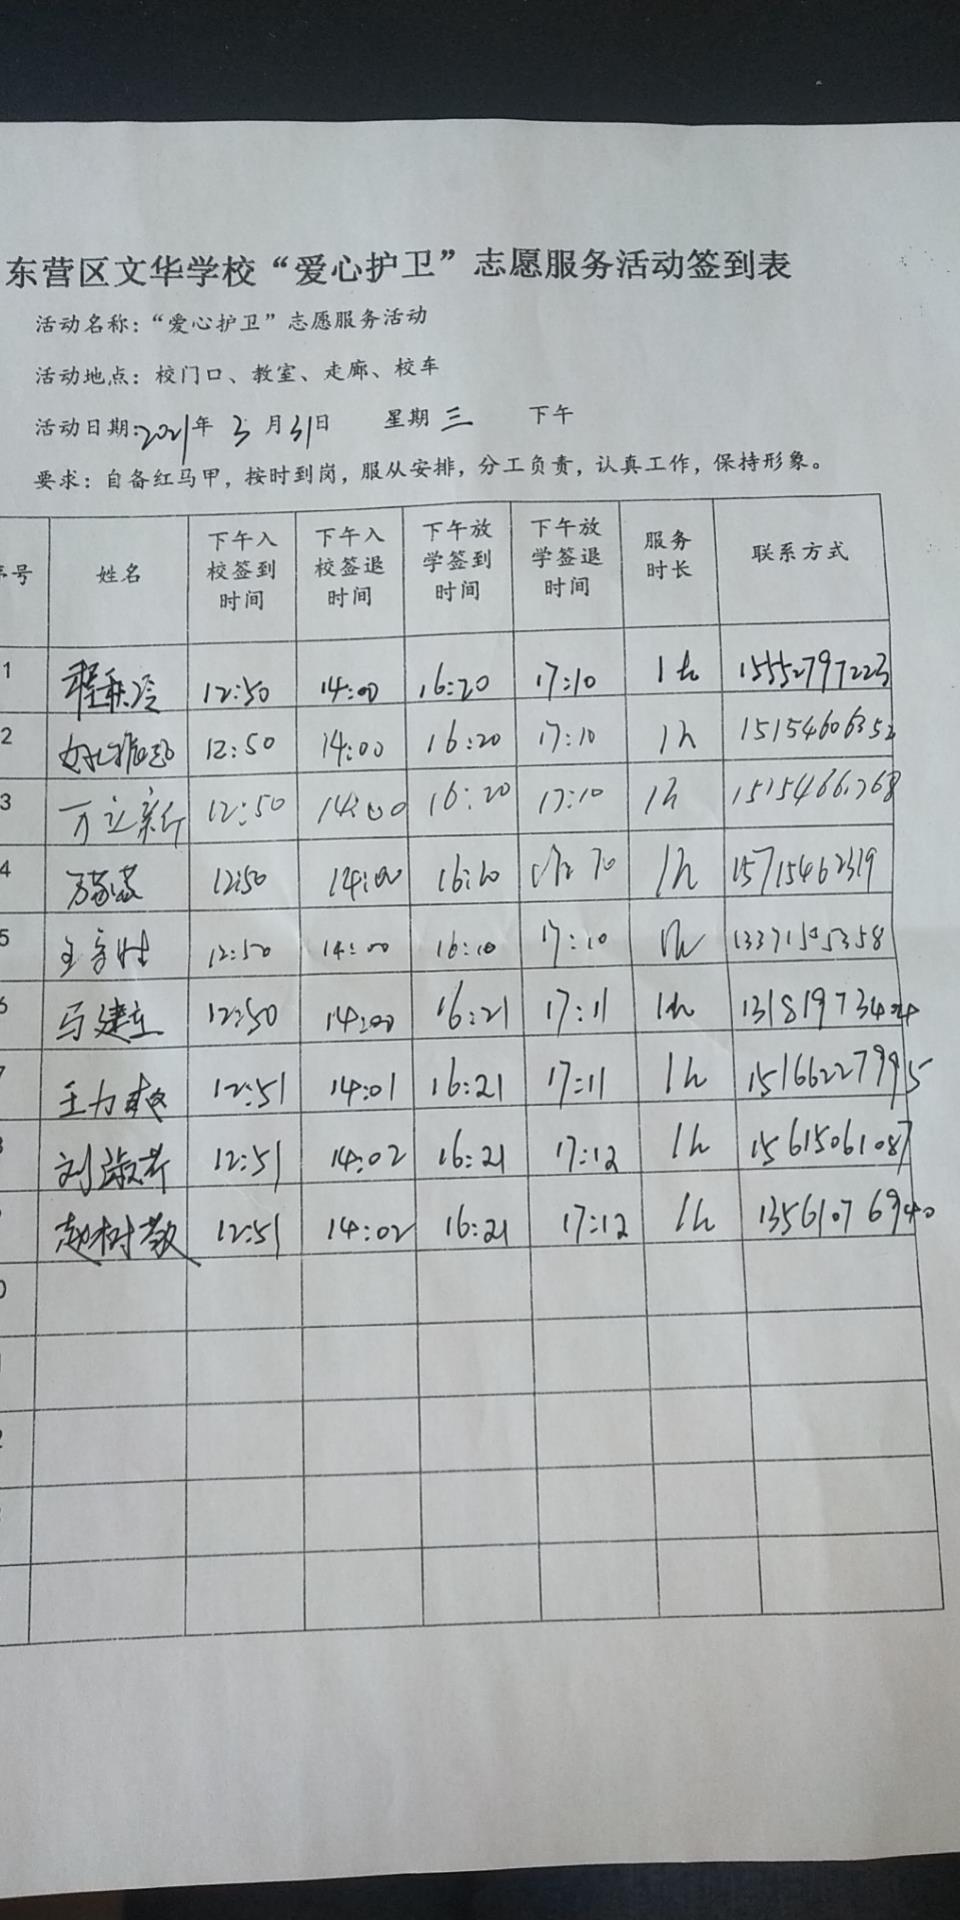 东营区文华学校“爱心护卫”志愿服务活动签到表
活动名称：“爱心护卫”志愿服务活动
活动地点：校门口、教室、走廊、校车
活动日期：2021年 3 月31日 星期 三 下午
要求：自备红马甲，按时到岗，服从安排，分工负责，认真工作，保持形象。
序号 姓名 下午入校签到时间 下午入校签退时间 下午放学签到时间 下午放学签退时间 服务时长 联系方式
1 12:50 14:00 16:20 17:10 1h 15552797223
2 12:50 14:00 16:20 17:10 1h 15154606352
3 万立新 12:50 14:00 16:20 17:10 1h
4 12:50 14:00 1h 15715462319
5 12:50 14:00 16:10 17:10 1h 13371505358
6 马建立 12:50 14:00 16:21 17:11 1h
7 王力爽 12:51 14:01 16:21 17:11 1h 15166227995
8 刘淑芹 12:51 14:02 16:21 17:12 1h 15615061087
9 赵树敬 12:51 14:02 16:21 17:12 1h 13561076940